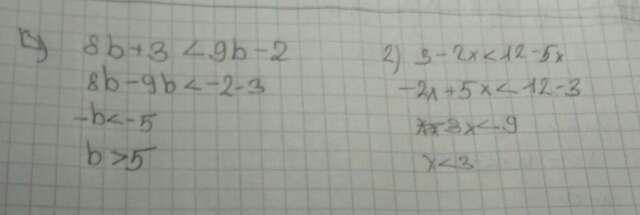 8b+3<9b-2
8b-9b<-2-3
-b<-5
b>5
2) 3-2x<12-5x
-2x+5x<12-3
3x<9
x<3